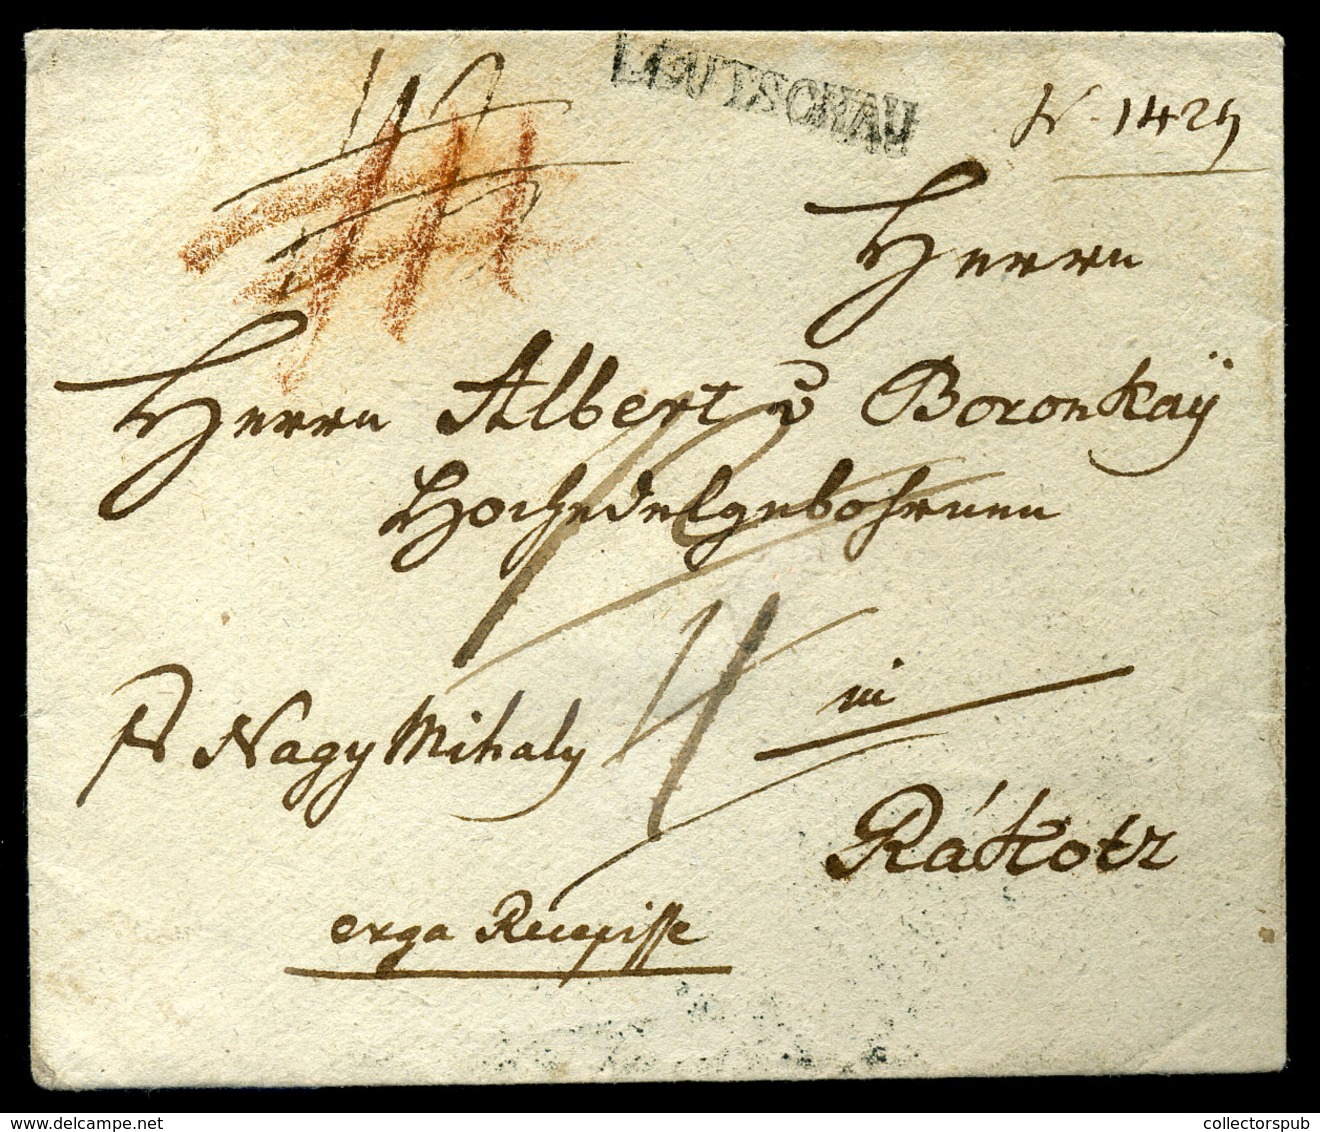 LEUTSCHAU
N. 1429
Herrn
Herrn Albert v Boronkaÿ
Hochedelgebohrnen
Nagy Mihaly
in
Rákotz
erga Recepisse
delcampe.net
collectorspub